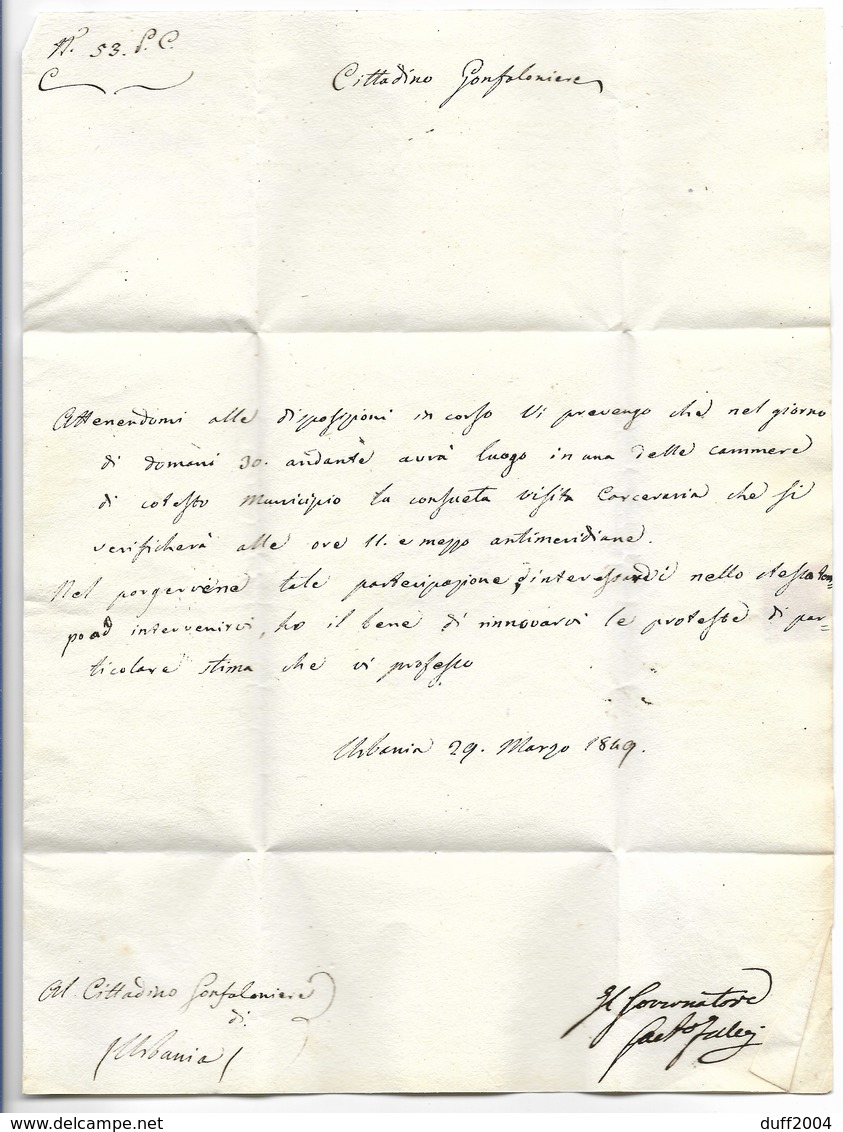 N.° 53. P. C.
Cittadino Gonfaloniere
Attenendomi alle disposizioni in corso Vi prevengo che nel giorno
di domani 30. andante avrà luogo in una delle cammere
di cotesto Municipio la consueta visita Carceraria che si
verificherà alle ore 11. e mezzo antimeridiane.
Nel porgervene tale partecipazione d'interessardi nello stesso tem=
po ad intervenirvi, ho il bene di rinnovarvi le proteste di par=
ticolare stima che vi professo
Urbania 29. Marzo 1849.
Al Cittadino Gonfaloniere
di
Urbania
Il Governatore
Gaet.°
www.delcampe.net
duff2004